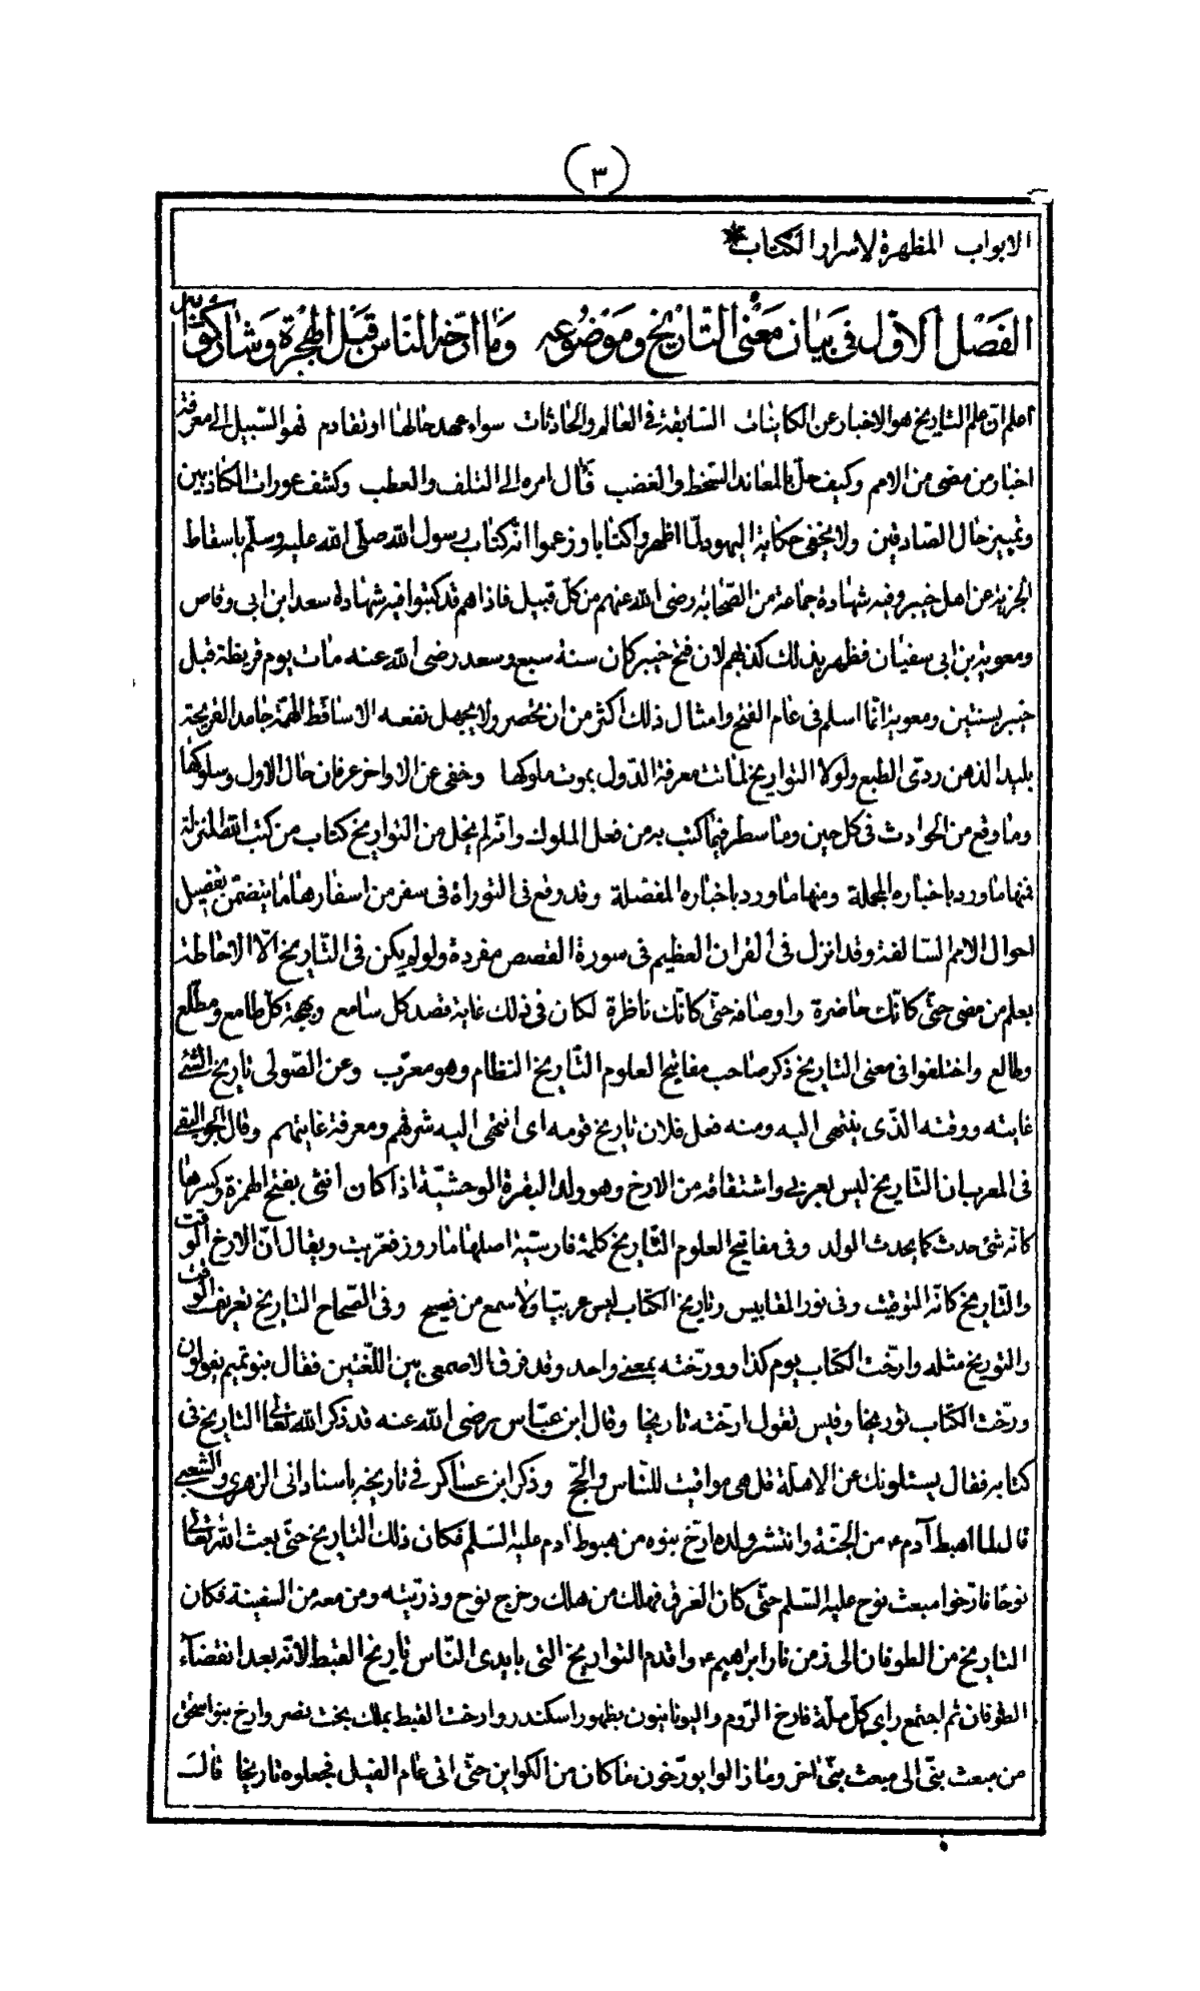 (٣)
الابواب المظهرة لاسرار الكتاب*
الفصل الاول فى بيان معنى التاريخ وموضوعه وما ارخه الناس قبل الهجرة وشاركوا
اعلم ان علم التاريخ هو الاخبار عن الكاينات السابقة فى العالم والحادثات سواء عهد حالها او تقادم فهو السبيل الى معرفة
اخبار من مضى من الامم وكيف حل بالمعاند السخط والغضب فآل امره الى التلف والعطب وكشف عورات الكاذبين
وتمييز حال الصادقين ولا يخفى حكاية اليهود لمّا اظهروا كتابا وزعموا انّه كتاب رسول الله صلى الله عليه وسلم باسقاط
الجزية عن اهل خيبر وفيه شهادة جماعة من الصحابة رضى الله عنهم من كل قبيل فاذا هم قد كتبوا فيه شهادة سعد ابن ابى وقاص
ومعوية بن ابى سفيان فظهر بذلك كذبهم لان فتح خيبر كان سنة سبع وسعد رضى الله عنه مات يوم قريظة قبل
خيبر بسنتين ومعوية انما اسلم فى عام الفتح وامثال ذلك اكثر من ان يحصر ولا يجهل نفعه الا ساقط الهمة جامد القريحة
بليد الذهن ردى الطبع ولولا التواريخ لماتت معرفة الدول بموت ملوكها وخفى عن الاواخر عرفان حال الاول وسلوكها
وما وقع من الحوادث فى كل حين وما سطر فيما كتب به من فعل الملوك وانه لم يخل من التواريخ كتاب من كتب الله المنزلة
فمنها ما ورد باخباره المجملة ومنها ما ورد باخباره المفصلة وقد وقع فى التوراة فى سفر من اسفارها ما يتضمن تفصيل
احوال الامم السالفة وقد انزل فى القران العظيم فى سورة القصص مفردة ولو لم يكن فى التاريخ الا الاحاطة
بعلم من مضى حتى كانك حاضرة واوصافه حتى كانك ناظرة لكان فى ذلك غاية قصد كل سامع وبهجة كل طامع ومطلع
وطالع واختلفوا فى معنى التاريخ ذكر صاحب مفاتيح العلوم التاريخ النظام وهو معرب وعن الصولى تاريخ الشئ
غايته ووقته الذى ينتهى اليه ومنه فعل فلان تاريخ قومه اى انتهى اليه شرفهم ومعرفة غايتهم وقال الجواليقى
فى المعرب ان التاريخ ليس بعربى واشتقاقه من الارخ وهو ولد البقرة الوحشية اذا كان انثى بفتح الهمزة وكسرها
كانه شئ حدث كما يحدث الولد وفى مفاتيح العلوم التاريخ كلمة فارسية اصلها ماروز فعربت ويقال ان الارخ الوقت
والتاريخ كانه التوقيت وفى نور المقابيس وتاريخ الكتاب ليس عربيا ولا سمع من فصيح وفى الصحاح التاريخ تعريف الوقت
والتوريخ مثله وارخت الكتاب يوم كذا وورخته بمعنى واحد وقد فرق الاصمعى بين اللغتين فقال بنو تميم يقولون
ورخت الكتاب توريخا وقيس تقول ارخته تاريخا وقال ابن عباس رضى الله عنه قد ذكر الله تعالى التاريخ فى
كتابه فقال يسئلونك عن الاهلة قل هى مواقيت للناس والحج وذكر ابن عساكر فى تاريخه باسناد الى الزهرى والشعبى
قالا لما اهبط آدم ع من الجنة وانتشر ولده ارخ بنوه من هبوط ادم عليه السلم فكان ذلك التاريخ حتى بعث الله تعالى
نوحا فارخوا مبعث نوح عليه السلم حتى كان الغرق فهلك من هلك وخرج نوح وذريته ومن معه من السفينة فكان
التاريخ من الطوفان الى زمن نار ابراهيم ع واقدم التواريخ التى بايدى الناس تاريخ القبط لانه بعد انقضآء
الطوفان ثم اجتمع راى كل ملة فارخ الروم واليونانيون بظهور اسكندر وارخت القبط بملك بخت نصر وارخ بنو اسحق
من مبعث نبى الى مبعث نبى اخر وما زالوا يورخون ما كان من الكواين حتى اتى عام الفيل فجعلوه تاريخا قالت